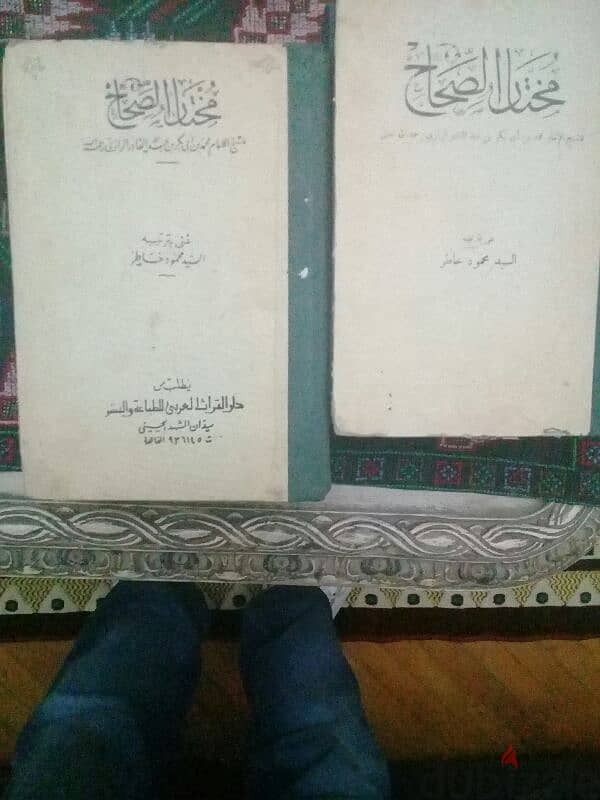 مختار الصحاح
للشيخ الإمام محمد بن أبي بكر بن عبد القادر الرازي رحمه الله
عنى بترتيبه
السيد محمود خاطر
يطلب من
دار التراث العربى للطباعة والنشر
ميدان المشهد الحسيني
ت ٩٣٦١٤٥ القاهرة
مختار الصحاح
للشيخ الإمام محمد بن أبي بكر بن عبد القادر الرازي
عنى بترتيبه
السيد محمود خاطر
dubizzle